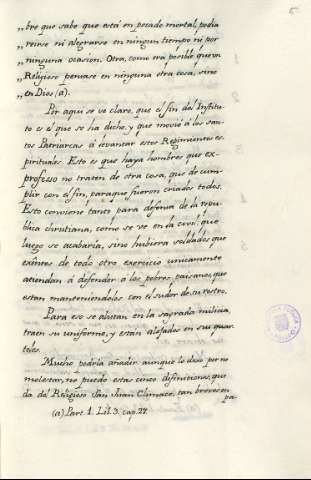 5
„bre que sabe que está en pecado mortal, podia
„reirse ni alegrarse en ningun tiempo ni por
„ninguna ocasion. Otra, como era posible que un
„Religioso pensase en ninguna otra cosa, sino
„en Dios (a).
Por aqui se ve claro, que el fin del Institu-
to es el que se ha dicho, y que movió á los san-
tos Patriarcas á levantar estos Regimientos es-
pirituales. Esto es que haya hombres que ex-
profeso no traten de otra cosa, que de cum-
plir con el fin, paraque fueron criados todos.
Esto conviene tanto para defensa de la repu-
blica christiana, como se ve en la civil, que
luego se acabaria, sino hubiera soldados que
exêntos de todo otro exercicio unicamente
atiendan á defender á los pobres paisanos, que
estan manteniendolos con el sudor de su rostro.
Para eso se alistan en la sagrada milicia,
traen su uniforme, y están alojados en sus quar-
teles.
Mucho podria añadir, aunque lo dexo por no
molestar, no puedo esta cinco difiniciones, que
da del Religioso San Juan Climaco, tan breves en
pa-
(a) Part. 1. Lib. 3. cap. 27.